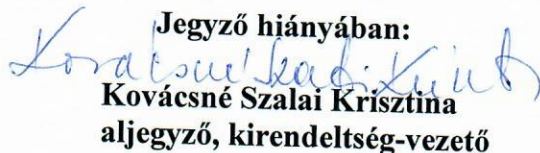 Jegyző hiányában:
Kovácsné Szalai Kriszt
Kovácsné Szalai Krisztina
aljegyző, kirendeltség-vezető